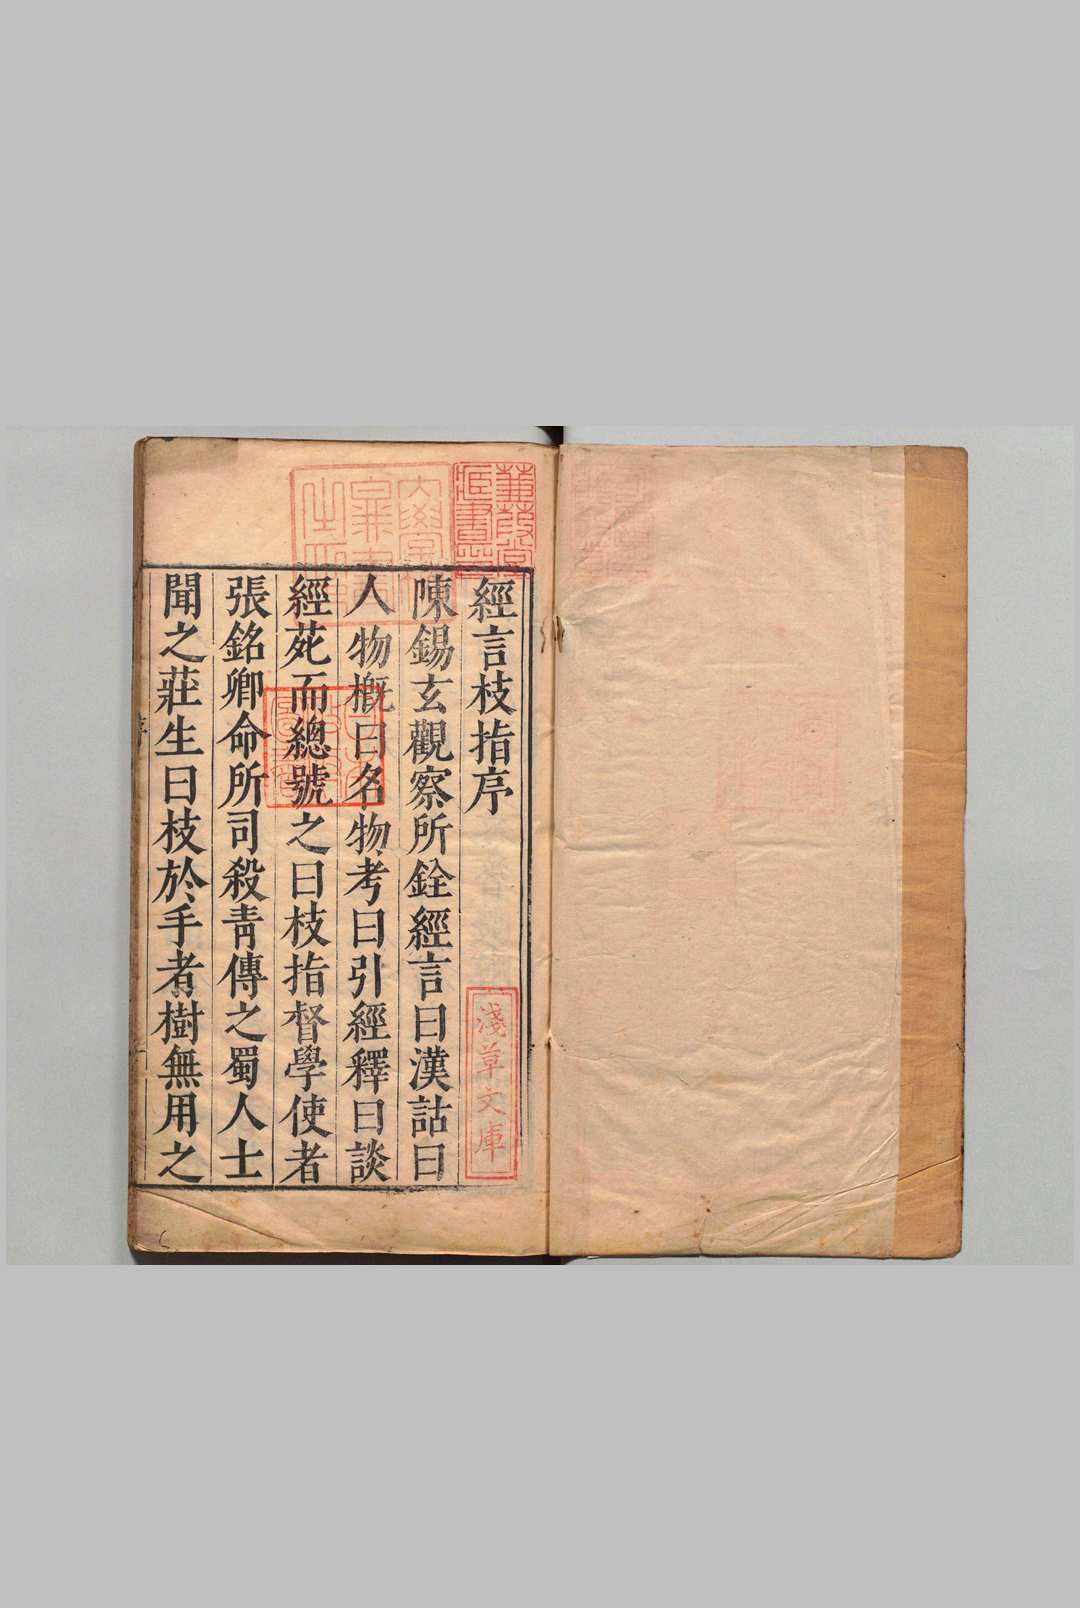 經言枝指序
陳錫玄觀察所銓經言曰漢詁曰
人物概曰名物考曰引經釋曰談
經苑而總號之曰枝指督學使者
張銘卿命所司殺青傳之蜀人士
聞之莊生曰枝於手者樹無用之
蒹葭堂
藏書印
淺草文庫
日本
政府
圖書